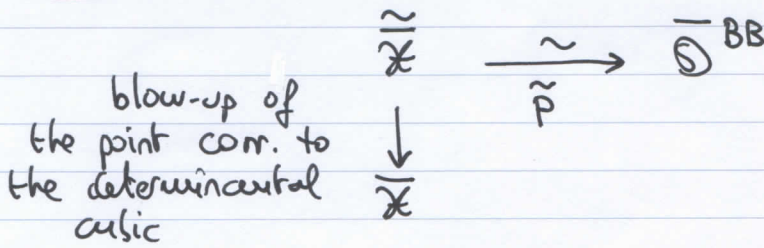 $\widetilde{\overline{\mathcal{X}}}$ $\xrightarrow[\widetilde{p}]{\sim}$ $\overline{\mathcal{S}}^{BB}$
blow-up of
the point corr. to ↓
the determinantal
cubic $\overline{\mathcal{X}}$